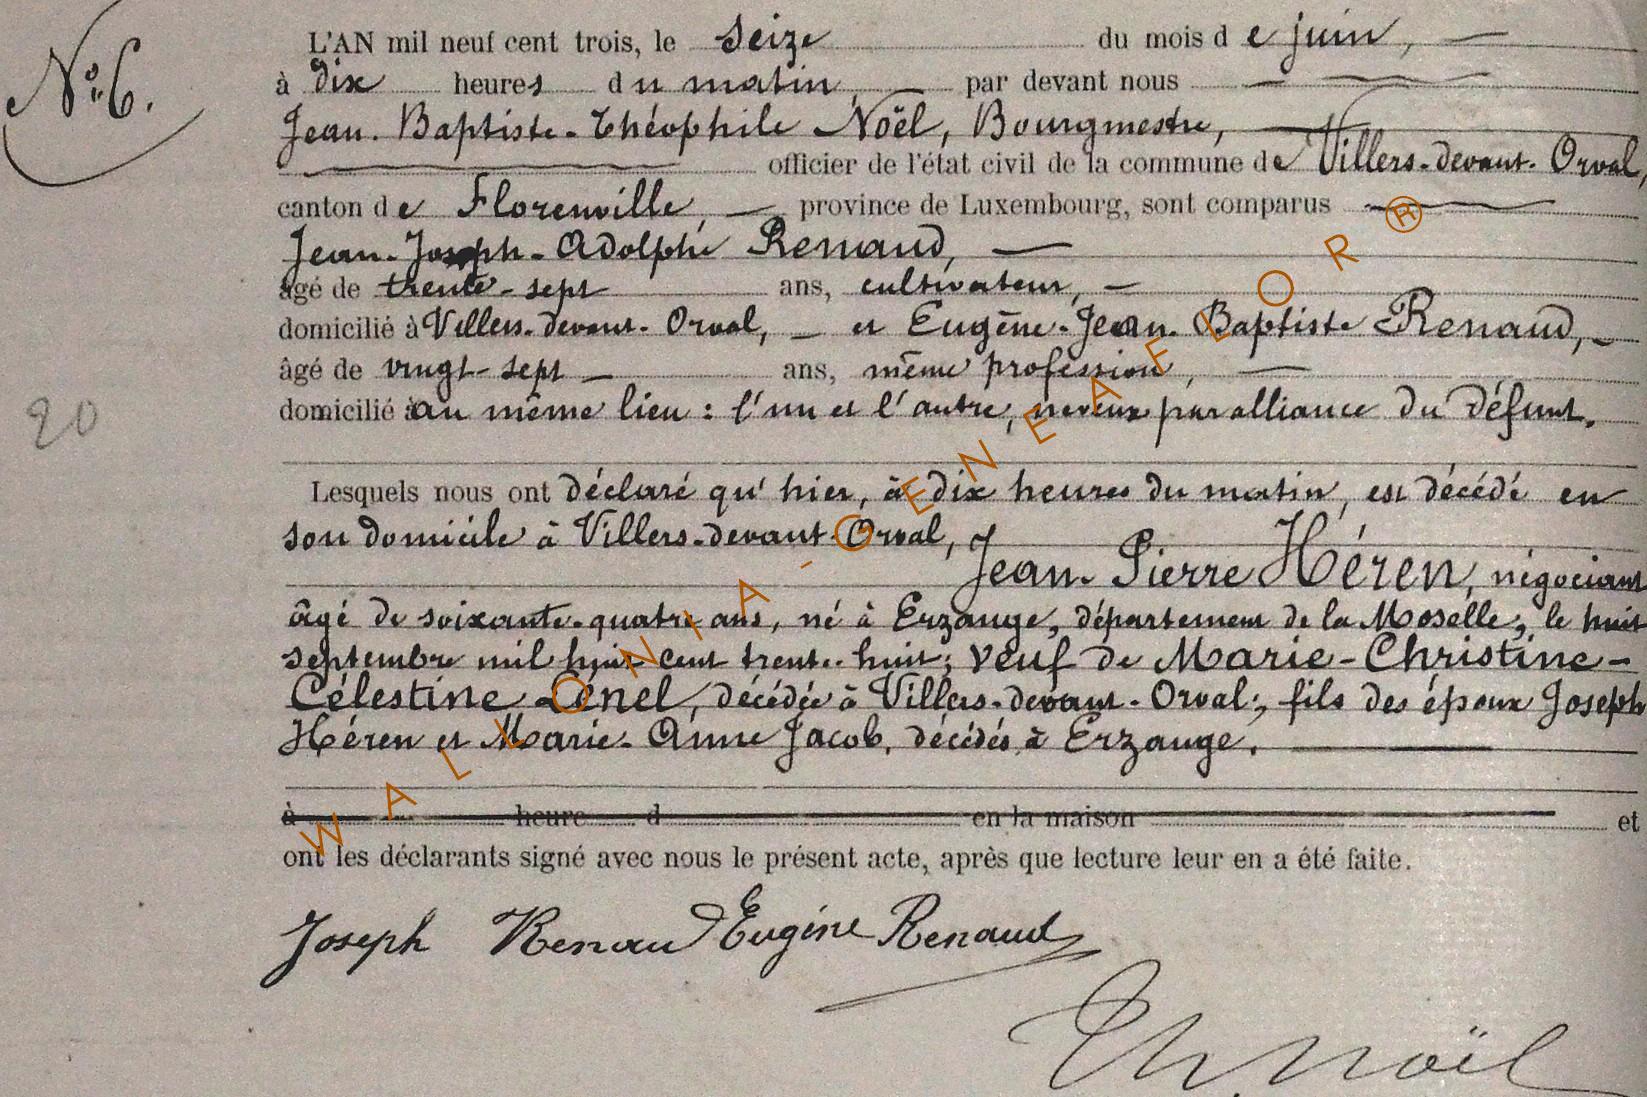 N° 6.
L'AN mil neuf cent trois, le seize du mois de juin,
à dix heures du matin, par devant nous
Jean-Baptiste-Théophile Noël, Bourgmestre,
officier de l'état civil de la commune de Villers-devant-Orval,
canton de Florenville, province de Luxembourg, sont comparus
Jean-Joseph-Adolphe Renaud,
âgé de trente-sept ans, cultivateur,
domicilié à Villers-devant-Orval, et Eugène-Jean-Baptiste Renaud,
âgé de vingt-sept ans, même profession,
domicilié au même lieu : l'un et l'autre, neveux par alliance du défunt.
20
Lesquels nous ont déclaré qu'hier, à dix heures du matin, est décédé en
son domicile à Villers-devant-Orval,
Jean-Pierre Héren, négociant
âgé de soixante-quatre ans, né à Erzange, département de la Moselle, le huit
septembre mil huit cent trente-huit; veuf de Marie-Christine-
Célestine Lénel, décédée à Villers-devant-Orval; fils des époux Joseph
Héren et Marie-Anne Jacob, décédés à Erzange.
à heure d en la maison et
ont les déclarants signé avec nous le présent acte, après que lecture leur en a été faite.
Joseph Renaud Eugène Renaud
Th. Noël
WALLONIA-GENEAFLOR®